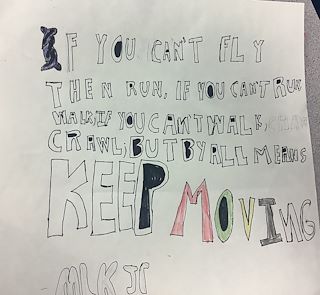 IF YOU CAN'T FLY
THEN RUN, IF YOU CAN'T RUN
WALK, IF YOU CAN'T WALK, CRAW
CRAWL, BUT BY ALL MEANS
KEEP MOVING
- MLK JR